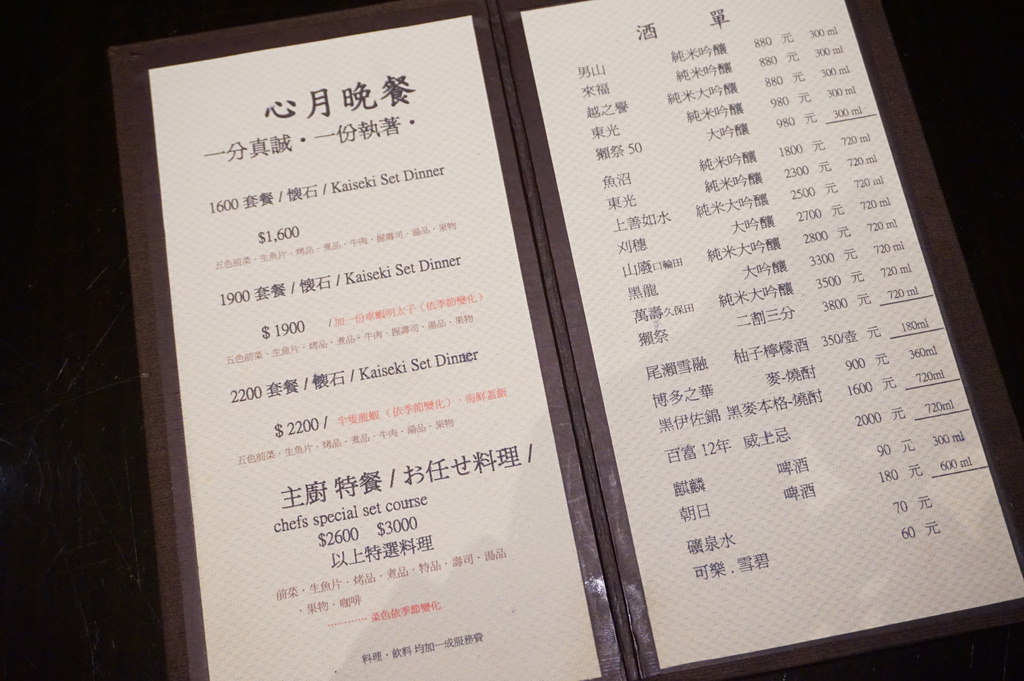 心月晚餐
一分真誠・一份執著・
1600 套餐 / 懷石 / Kaiseki Set Dinner
$1,600
五色前菜・生魚片・烤品・煮品・牛肉・握壽司・湯品・果物
1900 套餐 / 懷石 / Kaiseki Set Dinner
$ 1900 / 加一份車蝦明太子（依季節變化）
五色前菜・生魚片・烤品・煮品・牛肉・握壽司・湯品・果物
2200 套餐 / 懷石 / Kaiseki Set Dinner
$ 2200 / 半隻龍蝦（依季節變化）・海鮮蓋飯
五色前菜・生魚片・烤品・煮品・牛肉・湯品・果物
主廚 特餐 / お任せ料理 /
chefs special set course
$2600 $3000
以上特選料理
前菜・生魚片・烤品・煮品・特品・壽司・湯品
・果物・咖啡
............ 菜色依季節變化
料理・飲料 均加一成服務費
酒 單
男山 純米吟釀 880 元 300 ml
來福 純米吟釀 880 元 300 ml
越之譽 純米大吟釀 880 元 300 ml
東光 純米吟釀 980 元 300 ml
獺祭 50 大吟釀 980 元 300 ml
魚沼 純米吟釀 1800 元 720 ml
東光 純米吟釀 2300 元 720 ml
上善如水 純米大吟釀 2500 元 720 ml
刈穗 大吟釀 2700 元 720 ml
山廢口輪田 純米大吟釀 2800 元 720 ml
黑龍 大吟釀 3300 元 720 ml
萬壽久保田 純米大吟釀 3500 元 720 ml
獺祭 二割三分 3800 元 720 ml
尾瀨雪融 柚子檸檬酒 350/壺 元 180ml
博多之華 麥-燒酎 900 元 360ml
黑伊佐錦 黑麥本格-燒酎 1600 元 720ml
百富 12年 威士忌 2000 元 720ml
麒麟 啤酒 90 元 300 ml
朝日 啤酒 180 元 600 ml
礦泉水 70 元
可樂 . 雪碧 60 元